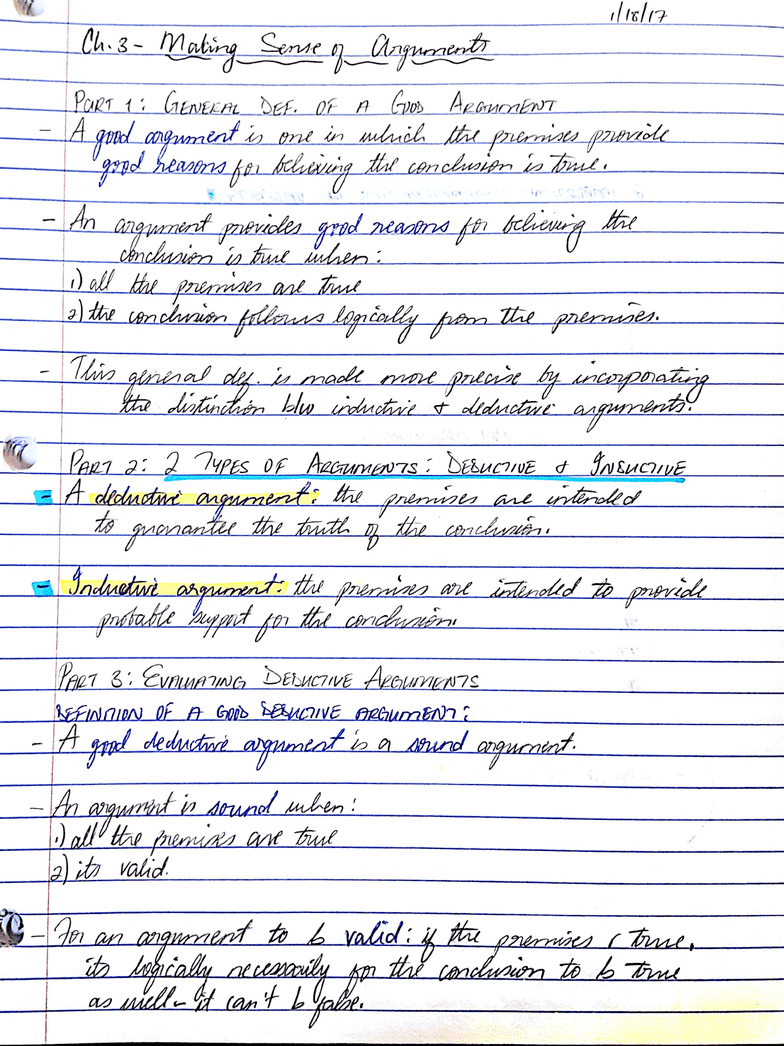 1/18/17
Ch. 3 - Making Sense of Arguments
PART 1: GENERAL DEF. OF A GOOD ARGUMENT
- A good argument is one in which the premises provide
good reasons for believing the conclusion is true.
- An argument provides good reasons for believing the
conclusion is true when:
1) all the premises are true
2) the conclusion follows logically from the premises.
- This general def. is made more precise by incorporating
the distinction b/w inductive & deductive arguments.
PART 2: 2 TYPES OF ARGUMENTS: DEDUCTIVE & INDUCTIVE
- A deductive argument: the premises are intended
to guarantee the truth of the conclusion.
- Inductive argument: the premises are intended to provide
probable support for the conclusion.
PART 3: EVALUATING DEDUCTIVE ARGUMENTS
DEFINITION OF A GOOD DEDUCTIVE ARGUMENT:
- A good deductive argument is a sound argument.
- An argument is sound when:
1) all the premises are true
2) its valid.
- For an argument to b valid: if the premises r true,
its logically necessarily for the conclusion to b true
as well - it can't b false.